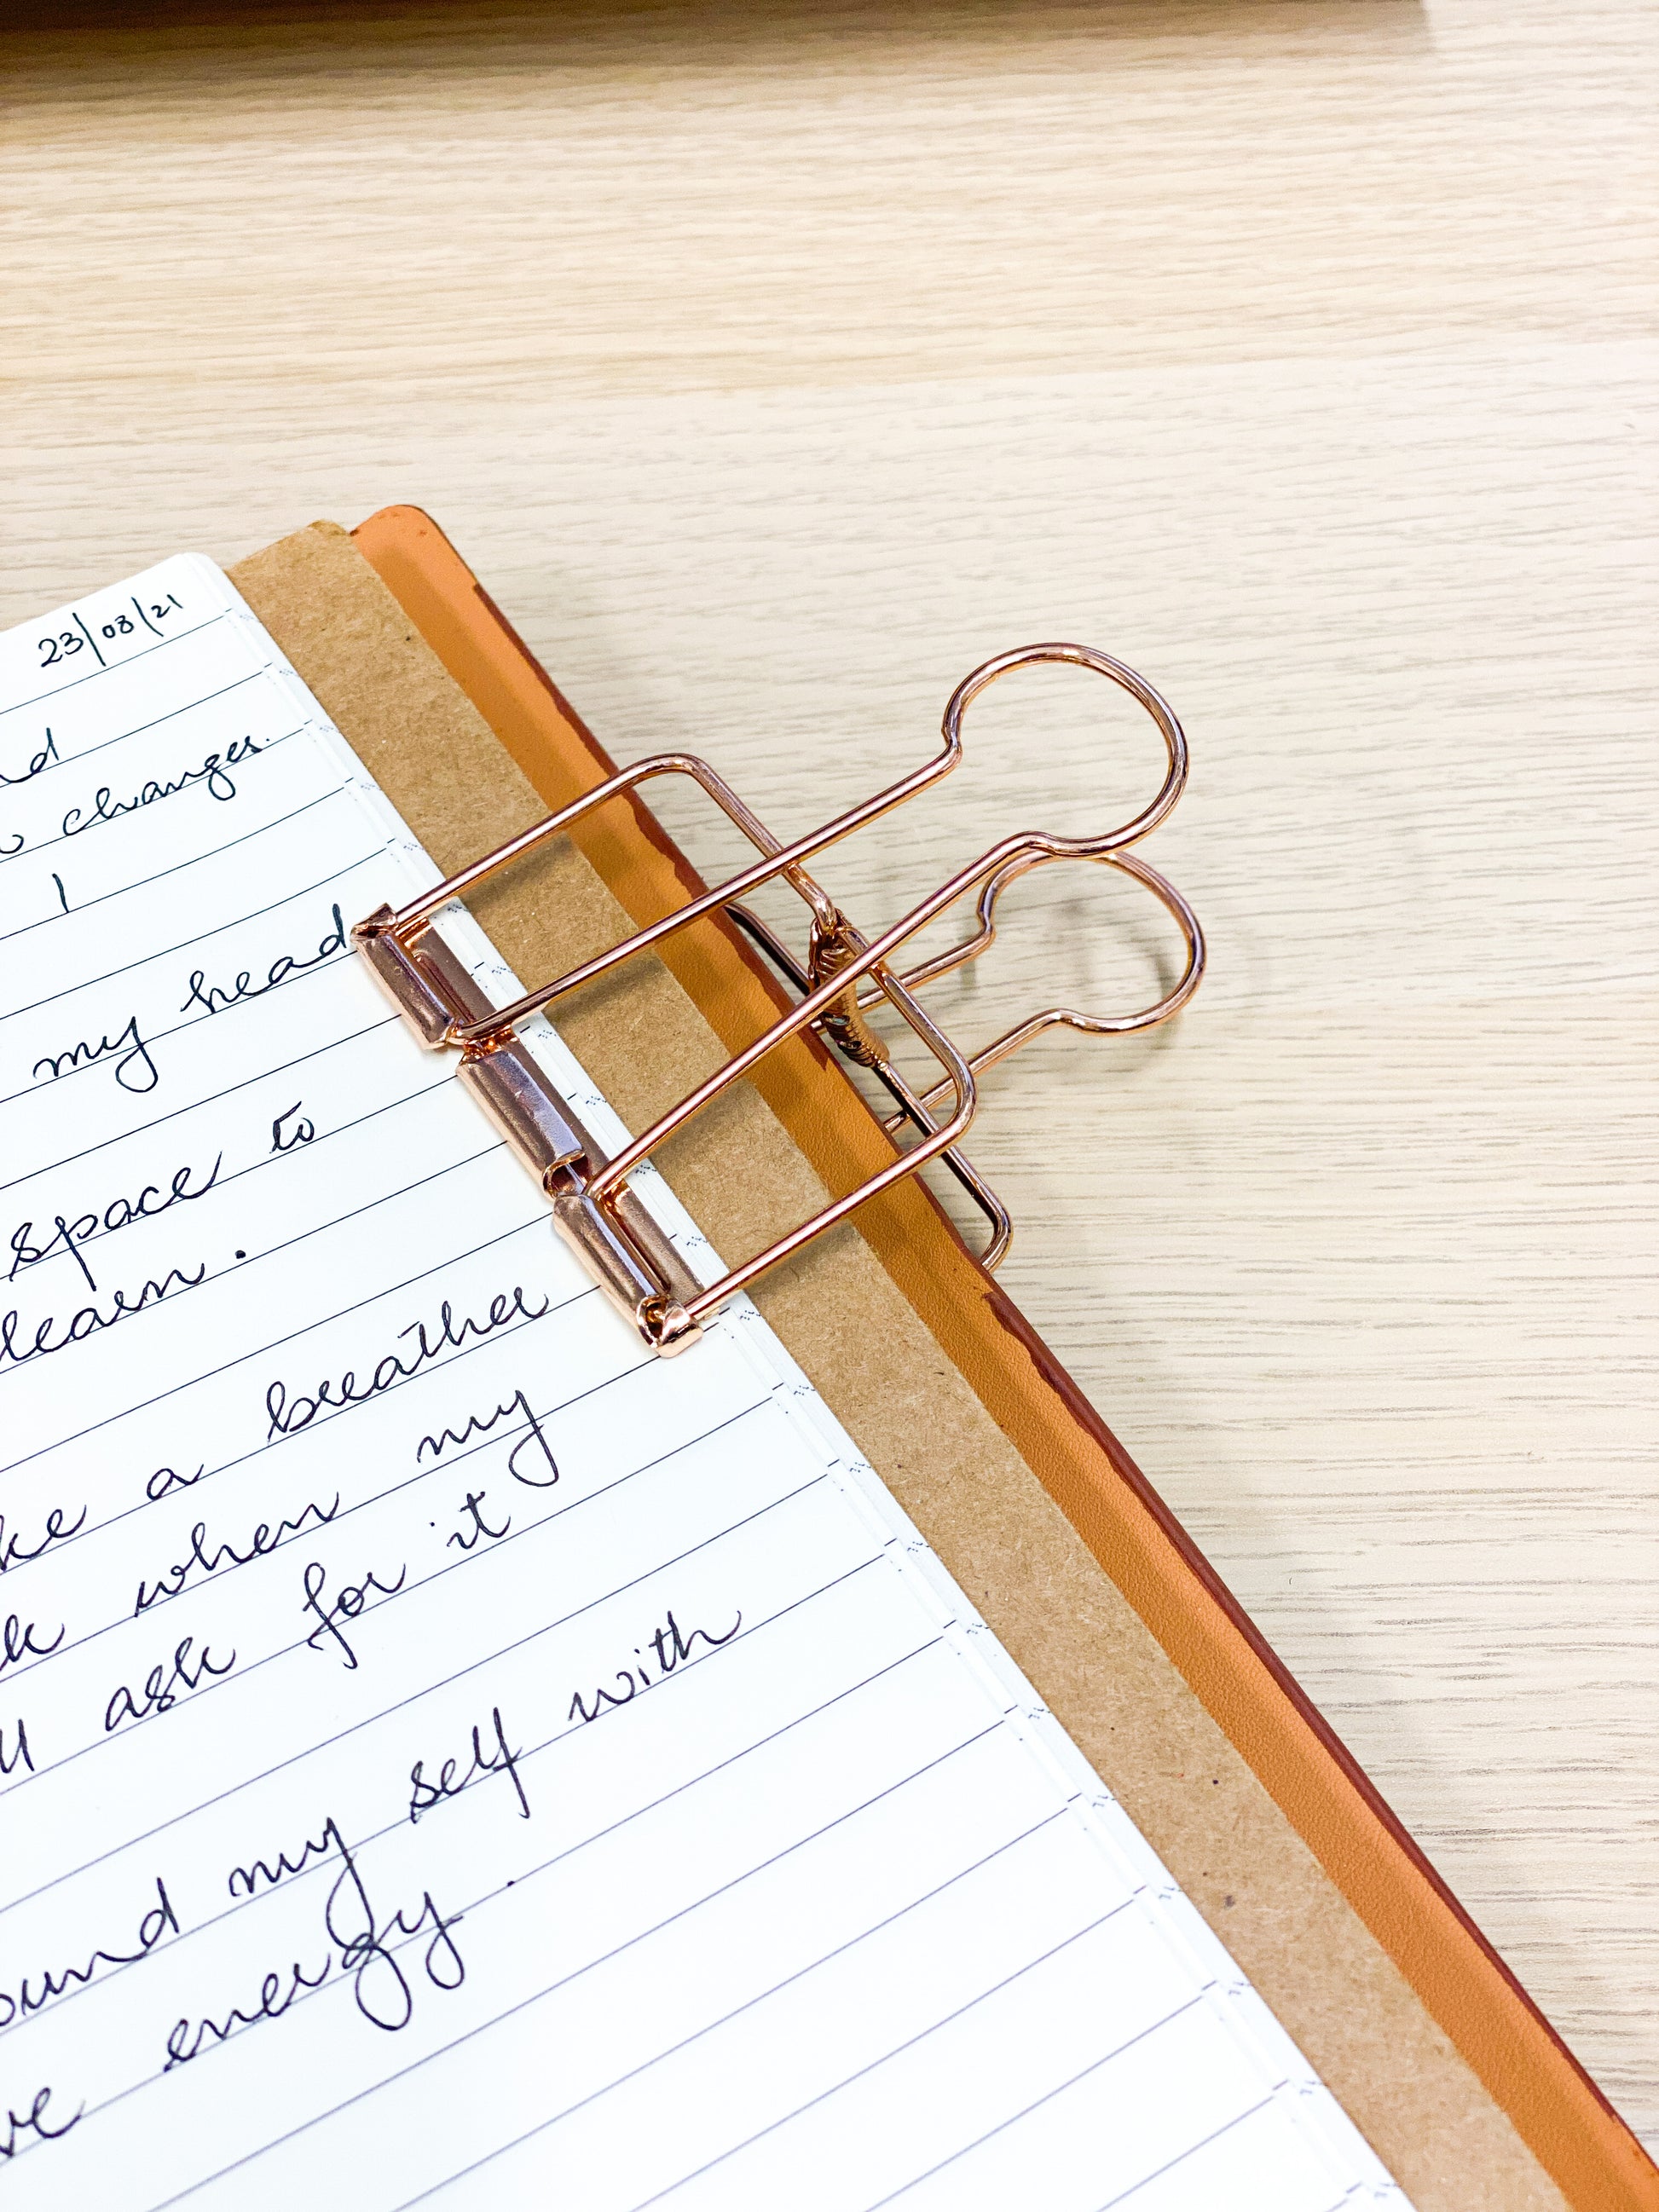 23/03/21
nd
changes.
I
my head
space to
learn.
ke a breather
k when my
ll ask for it
ound my self with
ve energy.